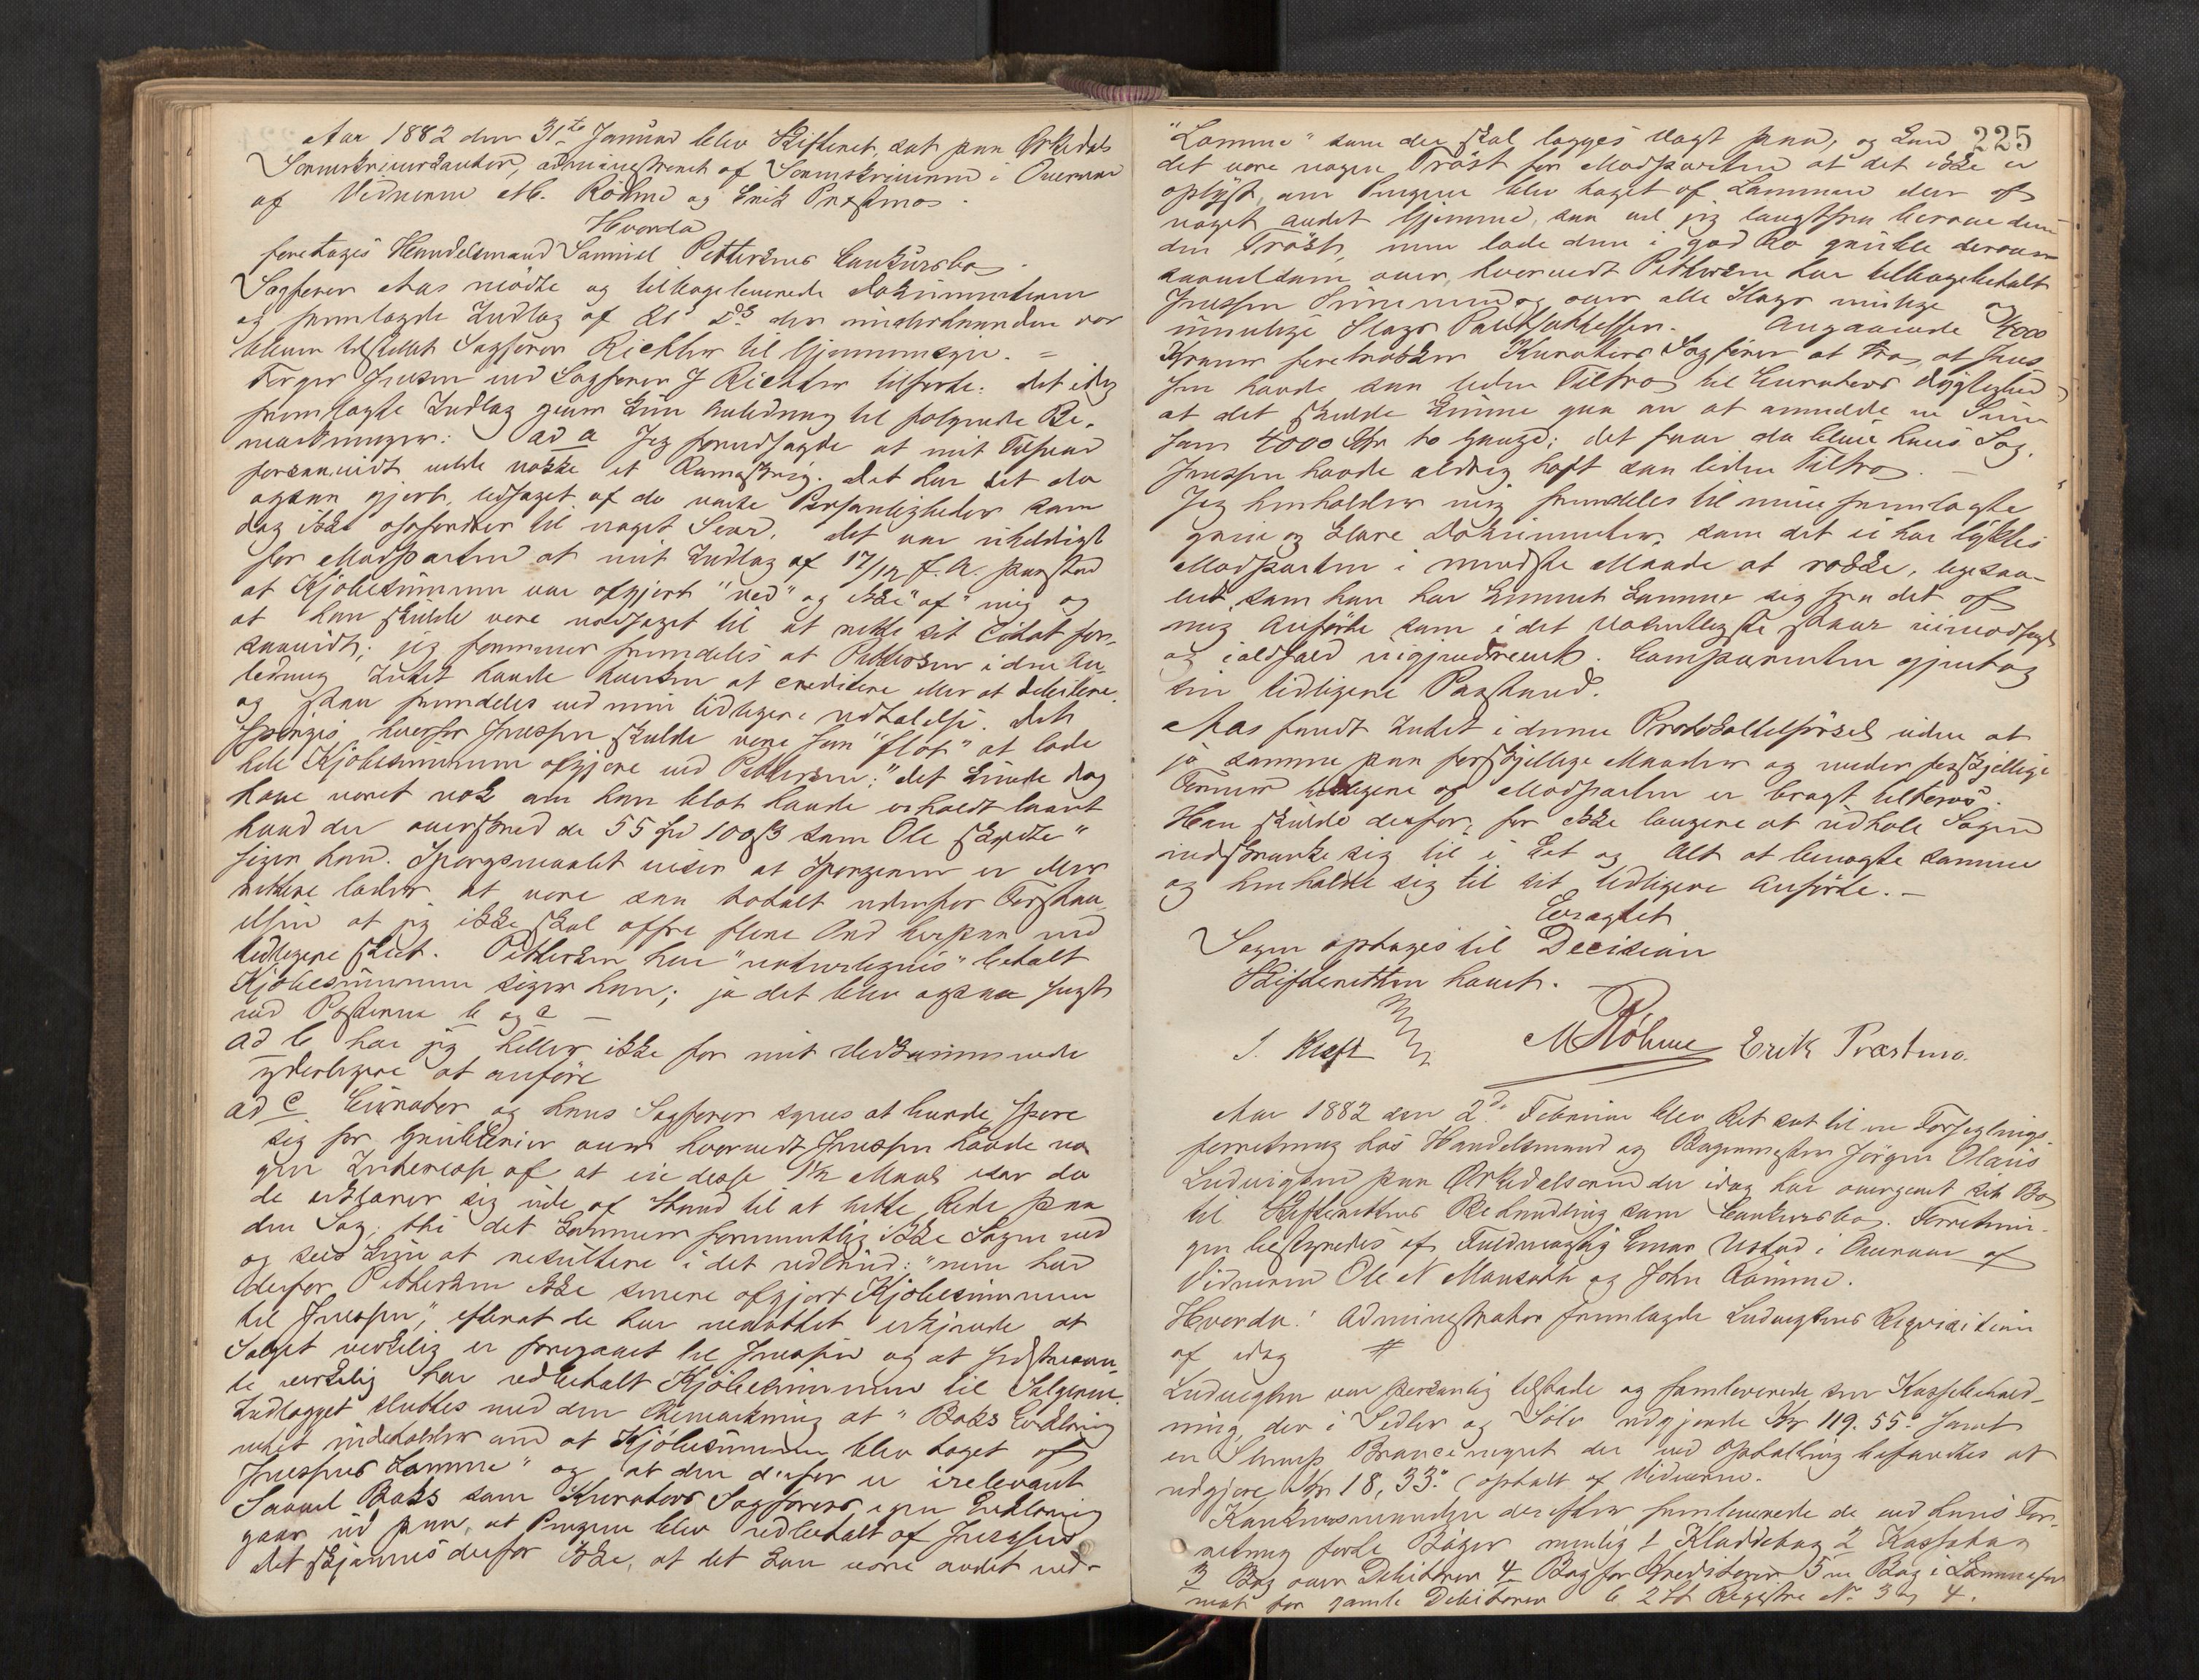 Aar 1882 den 31te Januar blev Skifteret sat paa Orkedals
Sorenskriverkontor, administreret af Sorenskriveren i Overvær
af Vidnerne M. Röhme og Erik Præstmo.
Hvorda
foretoges Handelsmand Samuel Pettersens Conkursbo.
Sagfører Aas mødte og tilbageleverede Dokumenterne
og fremlagde Indlæg af 21 ds der underhaanden var
bleven tilstillet Sagfører Richter til Gjennemsyn. =
Jørger Jenssen ved Sagfører J Richter tilførte: det idag
fremlagte Indlæg giver kun Anledning til følgende Be-
mærkninger: ad a Jeg forudsagde at mit Tilsvar
forsaavidt vilde vække et Ramaskrig. Det har det da
ogsaa gjort, ledsaget af de vante Personligheder som
dog ikke opfordrer til noget Svar. Det var uheldigt
for Modparten at mit Indlæg af 17/12 f. A. paastod
at Kjøbesummen var afgjort "ved" og ikke "af" mig og
at han skulde være nødsaget til at rette sit Citat for-
saavidt; jeg fremdeles at Pettersen i den An-
ledning Intet havde hverken at creditere eller at debitere
og staar fremdeles ved min tidligere Udtalelse. Det
spørges, hvorfor Jenssen skulde være saa "flot" at lade
hele Kjøbesummen afgjøre ved Pettersen: "det kunde dog
have været nok om han blot havde erholdt laant
hvad der overskred de 55 Spd 100 sk som Ole skyldte"
siger han. Spørgsmaalet viser at Spørgeren er eller
rettere lader at være saa totalt udenfor Forstaa-
elsen at jeg ikke skal offre flere Ord herpaa end
tidligere skeet. Pettersen har "naturligvis" betalt
Kjøbesummen siger han; ja det blev ogsaa sagt
ved Posterne b og c
ad b har jeg heller ikke for mit Vedkommende
yderligere at anføre
ad c Curator og hans Sagfører synes at burde spare
sig for Grublerier over hvorvidt Jenssen havde no-
gen Interesse af at eie disse 1½ Maal især da
de erklærer sig ude af Stand til at rette Rede paa
den Sag; thi det kommer formentlig ikke Sagen ved
og sees kun at resultere i det Udbrud: "men hvad
derfor Pettersen ikke senere afgjort Kjøbesummen
til Jenssen", efterat de har maattet erkjende at
Salget virkelig er foregaaet til Jenssen og at sidstnævn-
te virkelig har udbetalt Kjøbesummen til Sælgeren.
Indlægget sluttes med den Bemærkning at "Baks Erklæring
intet indeholder om at Kjøbesummen blev taget af
Jenssens Lomme" og at den derfor er irelevant
Saavel Baks som Kurators Sagførers egen Erklæring
gaar ud paa, at Pengene blev udbetalt af Jenssen
Det skjønnes derfor ikke, at det kan være andet end
225
"Lomme" som der skal lægges Vægt paa, og kan
det være nogen Trøst for Modparten at det ikke er
oplyst, om Pengene blev taget af Lommen eller af
noget andet Gjemme, saa vil jeg langtfra berøve dem
den Trøst, men lade dem i god Ro gruble derover
saavelsom over, hvorvidt Pettersen har tilbagebetalt
Jenssen Summen og over alle Slags mulige og
umulige Slags . Angaaende 4000
Kroner foretrækker Kurators Sagfører at tro, at Jens-
sen havde saa liden Tiltro til Curators Dygtighed
at det skulde kunne gaa an at anmelde en Sum
som 4000 Kr to Gange; det faar da blive hans Sag.
Jenssen havde aldrig havt saa liden Tiltro. —
Jeg henholder mig fremdeles til mine fremlagte
greie og klare Dokumenter, som det ei har lykkes
Modparten i mindste Maade at rokke, ligesaa-
lidt, som han har kunnet komme sig fra det af
mig Anførte som i det Væsentligste staar uimodsagt
og ialdfald ugjendrevet. Comparenten gjentog
sin tidligere Paastand.
Aas fandt Intet i denne Protokoltilførsel uden at
jo samme paa forskjellige Maader og under forskjellige
Former tidligere af Modparten er bragt tiltorvs.
Han skulde derfor, for ikke længere at udhale Sagen
indskrænke sig til i Et og Alt at benægte samme
og henholdt sig til sit tidligere Anførte. —
Eragtet
Sagen optages til Decision
Skifteretten hævet. —
J. Kraft M Röhme Erik Præstmo.
Aar 1882 den 2den Februar blev Ret sat til en Forseglings-
forretning hos Handelsmand og Bagermester Jørgen Olaus
Ludvigsen paa Orkedalsøren der idag har overgivet sit Bo
til Skifterettens Behandling som Conkursbo. Forretnin-
gen bestyredes af Fuldmægtig Einar Ustad i Overvær af
Vidnerne Ole N Mansæth og John Ramme.
Hvorda: Administrator fremlagde Ludvigsens Reqvisition
af idag #
Ludvigsen var personlig tilstede og fremleverede sin Kassebehold-
ning, der i Sedler og Sølv udgjorde Kr 119.55 samt
en Slump Broncemynt der ved Optælling befandtes at
udgjøre Kr 18,33. (optalt af Vidnerne.
derefter fremleverede de ved hans For-
retning førte Bøger nemlig 1 Kladdebog 2 Kassabog
3 Bog over Debitorer 4 Bog for Kreditorer 5 en Bog i Lommefor
mat for gamle Debitorer 6 2 St Registre No 3 og 4.